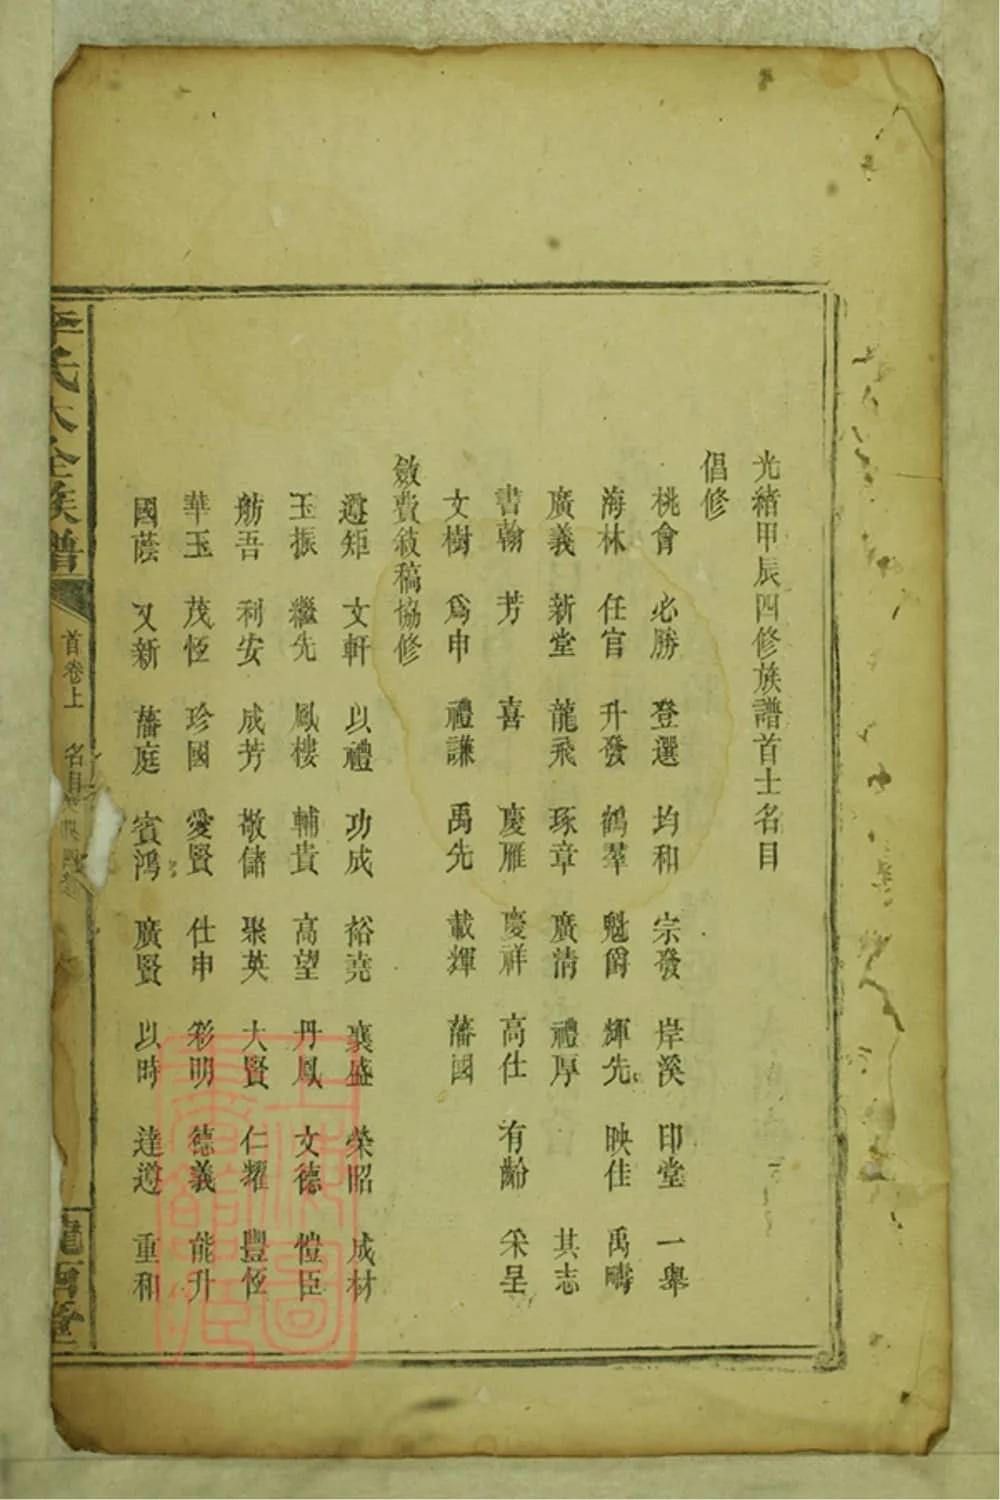 光緒甲辰四修族譜首士名目
倡修
桃會 必勝 登選 均和 宗發 岸溪 印堂 一舉
海林 任官 升發 鶴羣 魁爵 輝先 映佳 禹疇
廣義 新堂 龍飛 琢章 廣清 禮厚 其志
書翰 芳 喜 慶雁 慶祥 高仕 有齡 采呈
文樹 爲申 禮謙 禹先 載輝 藩國
斂費敍稿協修
遵矩 文軒 以禮 功成 裕堯 襄盛 榮昭 成材
玉振 繼先 鳳樓 輔貴 高望 丹鳳 文德 愷臣
舫吾 利安 成芳 敬儲 聚英 大賢 仁耀 豐恆
華玉 茂恆 珍國 愛賢 仕申 彩明 德義 能升
國蔭 又新 藩庭 賓鴻 廣賢 以時 達遵 重和
李氏大全族譜
首卷上 名目
龍西堂